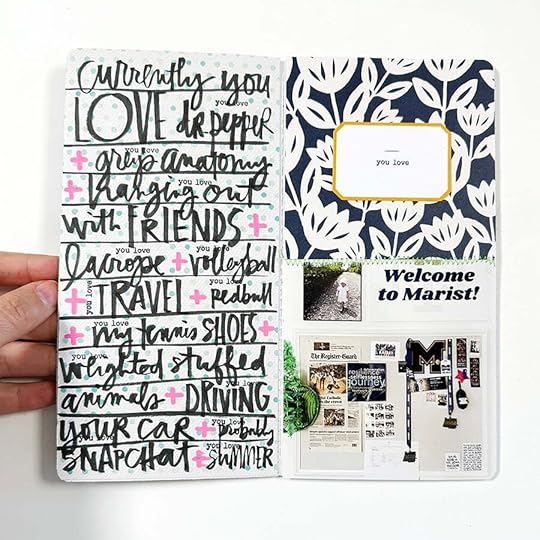 currently you
LOVE dr. pepper
you love
+ greys anatomy
+ hanging out
you love
with FRIENDS +
you love
you love
lacrosse + volleyball
+ TRAVEL + redbull
you love
you love
+ my tennis SHOES +
you love
weighted stuffed
you love
animals + DRIVING
you love
YOUR CAR + probably
you love
you love
SNAPCHAT + SUMMER
you love
Welcome
to Marist!
The Register-Guard
resilience
selflessness
journey
M